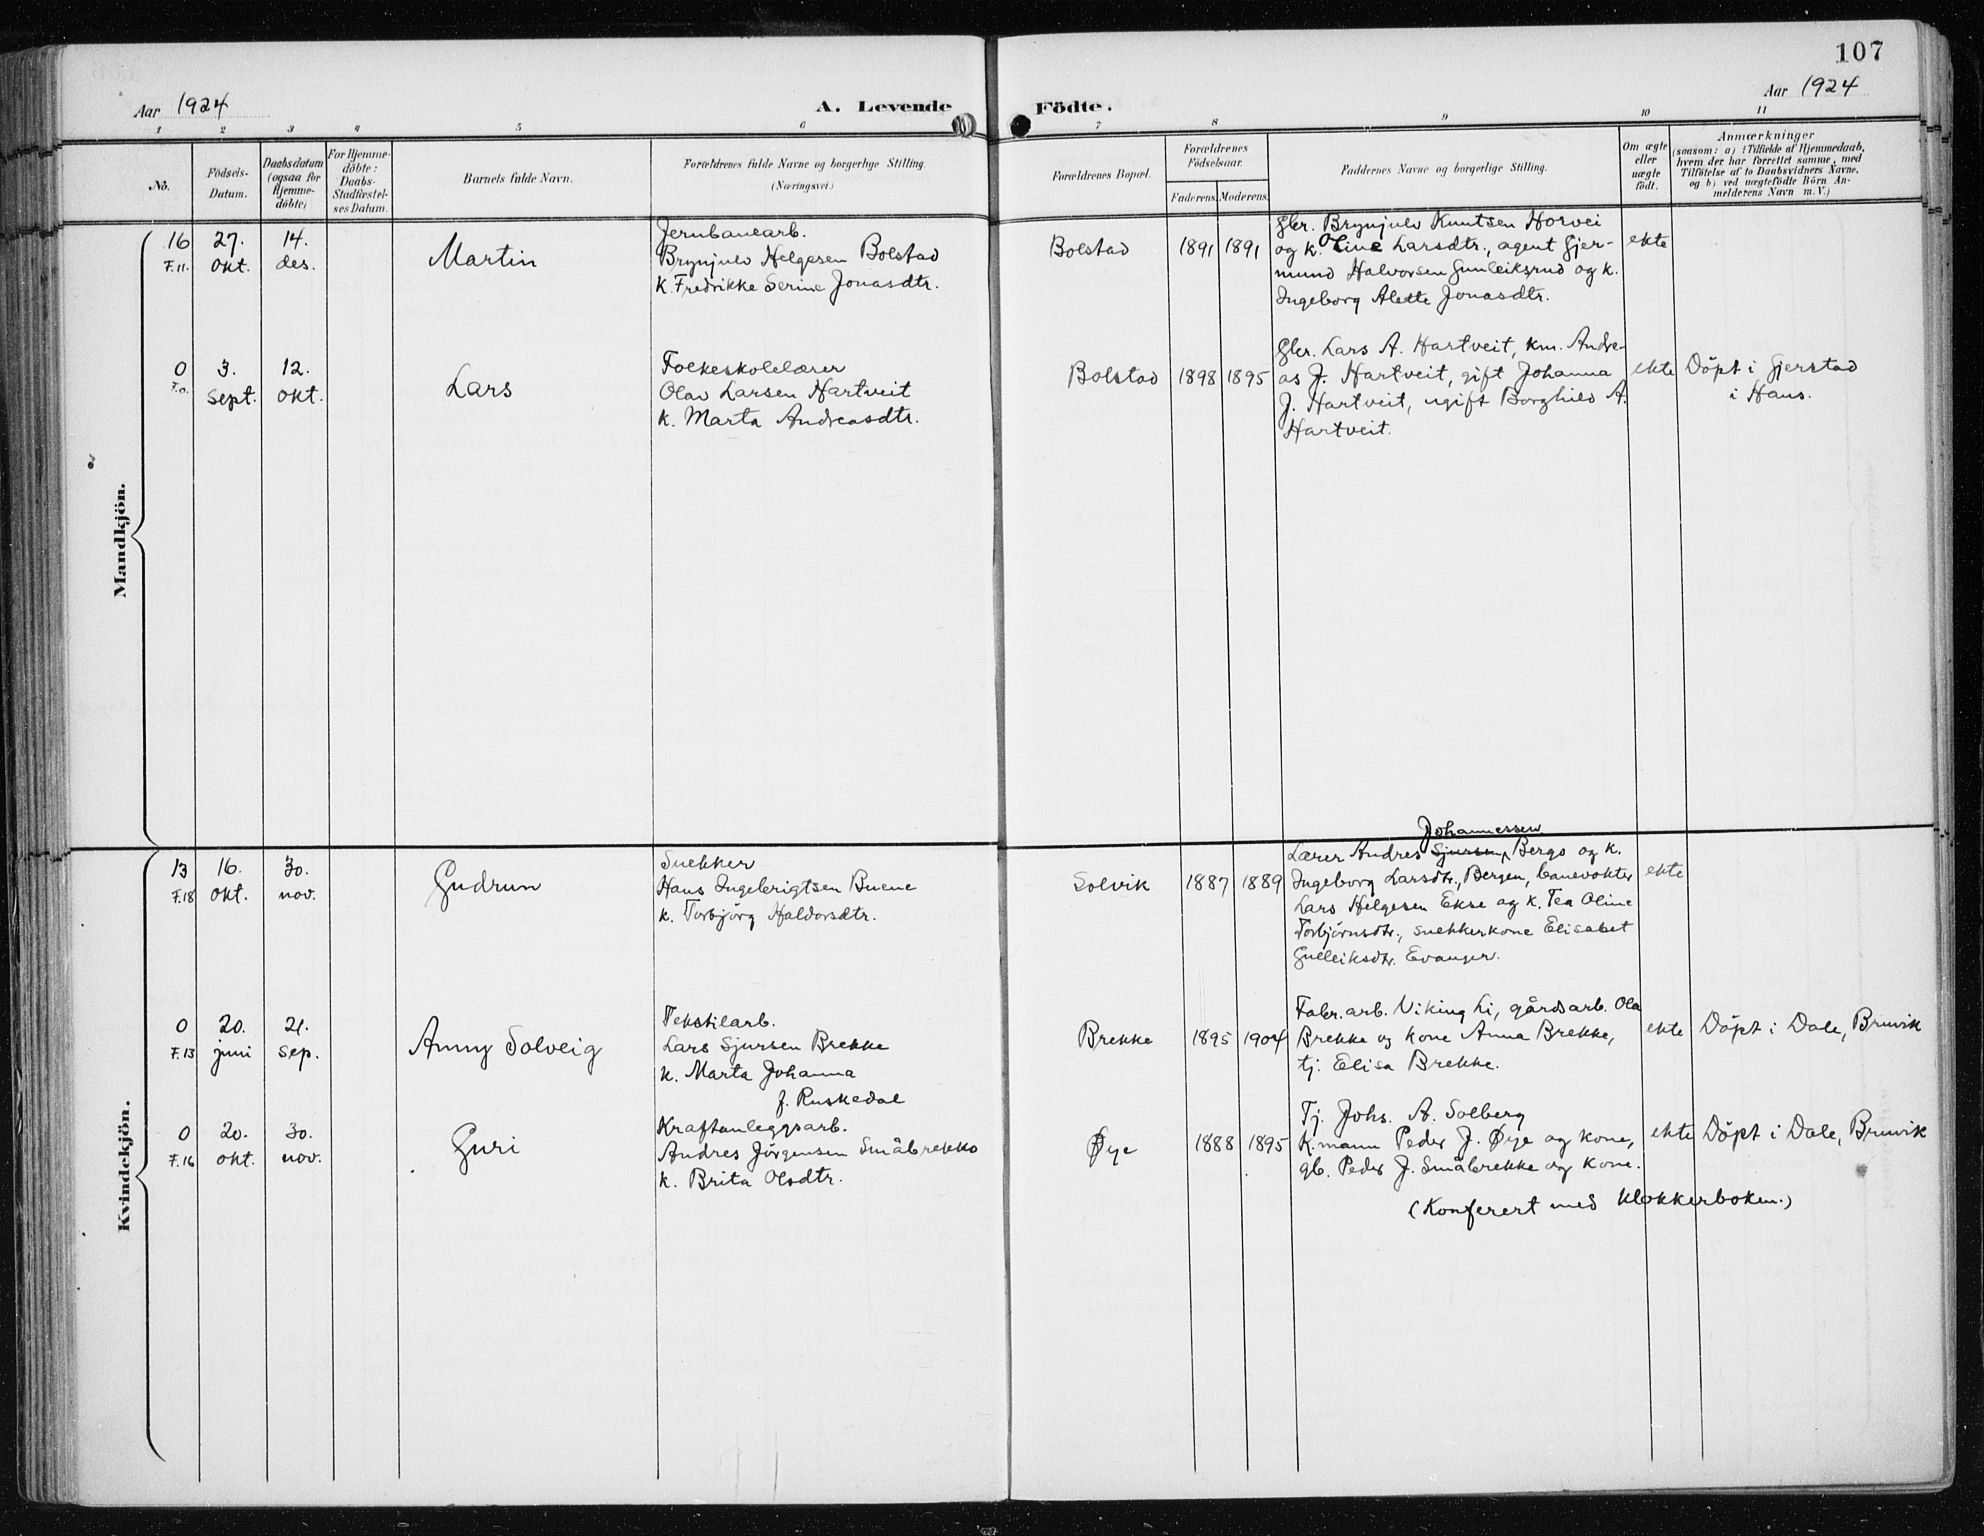 107
Aar 1924
A. Levende Födte.
Aar 1924
1 2 3 4 5 6 7 8 9 10 11
No.
Födsels-
Datum.
Daabsdatum
(ogsaa for
Hjemme-
döbte)
For Hjemme-
döbte:
Daabs-
Stadfæstel-
ses Datum.
Barnets fulde Navn.
Forældrenes fulde Navne og borgerlige Stilling.
(Næringsvei.)
Forældrenes Bopæl.
Forældrenes
Födselsaar.
Faderens. Moderens.
Faddernes Navne og borgerlige Stilling.
Om ægte
eller
uægte
födt.
Anmærkninger
(saasom: a) i Tilfælde af Hjemmedaab,
hvem der har forrettet samme, med
Tilföielse af to Daabsvidners Navne,
og b) ved uægtefödte Börn An-
melderens Navn m. V.)
Mandkjön.
16
F.11.
27.
okt.
14.
des.
Martin
Jernbanearb.
Brynjulv Helgesen Bolstad
k. Fredrikke Serine Jonasdtr.
Bolstad
1891
1891
Gbr. Brynjulv Knutsen Horvei
og k. Oline Larsdtr., agent Gjer-
mund Halvorsen Gunleiksrud og k.
Ingeborg Alette Jonasdtr.
ekte
0
F.0.
3.
sept.
12.
okt.
Lars
Folkeskolelærer
Olav Larsen Hartveit
k. Marta Andreasdtr.
Bolstad
1898
1895
Gbr. Lars A. Hartveit, km. Andre-
as J. Hartveit, gift Johanna
J. Hartveit, ugift Borghild A.
Hartveit.
ekte
Döpt i Gjerstad
i Haus.
Kvindekjön.
13
F.18
16.
okt.
30.
nov.
Gudrun
Snekker
Hans Ingebrigtsen Buene
k. Torbjörg Haldorsdtr.
Solvik
1887
1889
Johannessen
Lærer Andres Sjursen, Bergo og k.
Ingeborg Larsdtr., Bergen, banevokter
Lars Helgesen Ekse og k. Tea Oline
Torbjörnsdtr., snekkerkone Elisabet
Gulleiksdtr. Evanger.
ekte
0
F.13
20.
juni
21.
sep.
Anny Solveig
Tekstilarb.
Lars Sjursen Brekke
k. Marta Johanna
f. Ruskedal
Brekke
1895
1904
Fabr. arb. Viking Li, gårdsarb. Ola
Brekke og kone Anna Brekke,
tj. Elisa Brekke.
ekte
Döpt i Dale, Bruvik
0
F.16
20.
okt.
30.
nov.
Guri
Kraftanleggsarb.
Andres Jörgensen Småbrekke
k. Brita Olsdtr.
Øye
1888
1895
Tj. Johs. A. Solberg
K.mann Peder J. Øye og kone,
gb. Peder J. Småbrekke og kone.
ekte
Döpt i Dale, Bruvik
(Konferert med klokkerboken.)